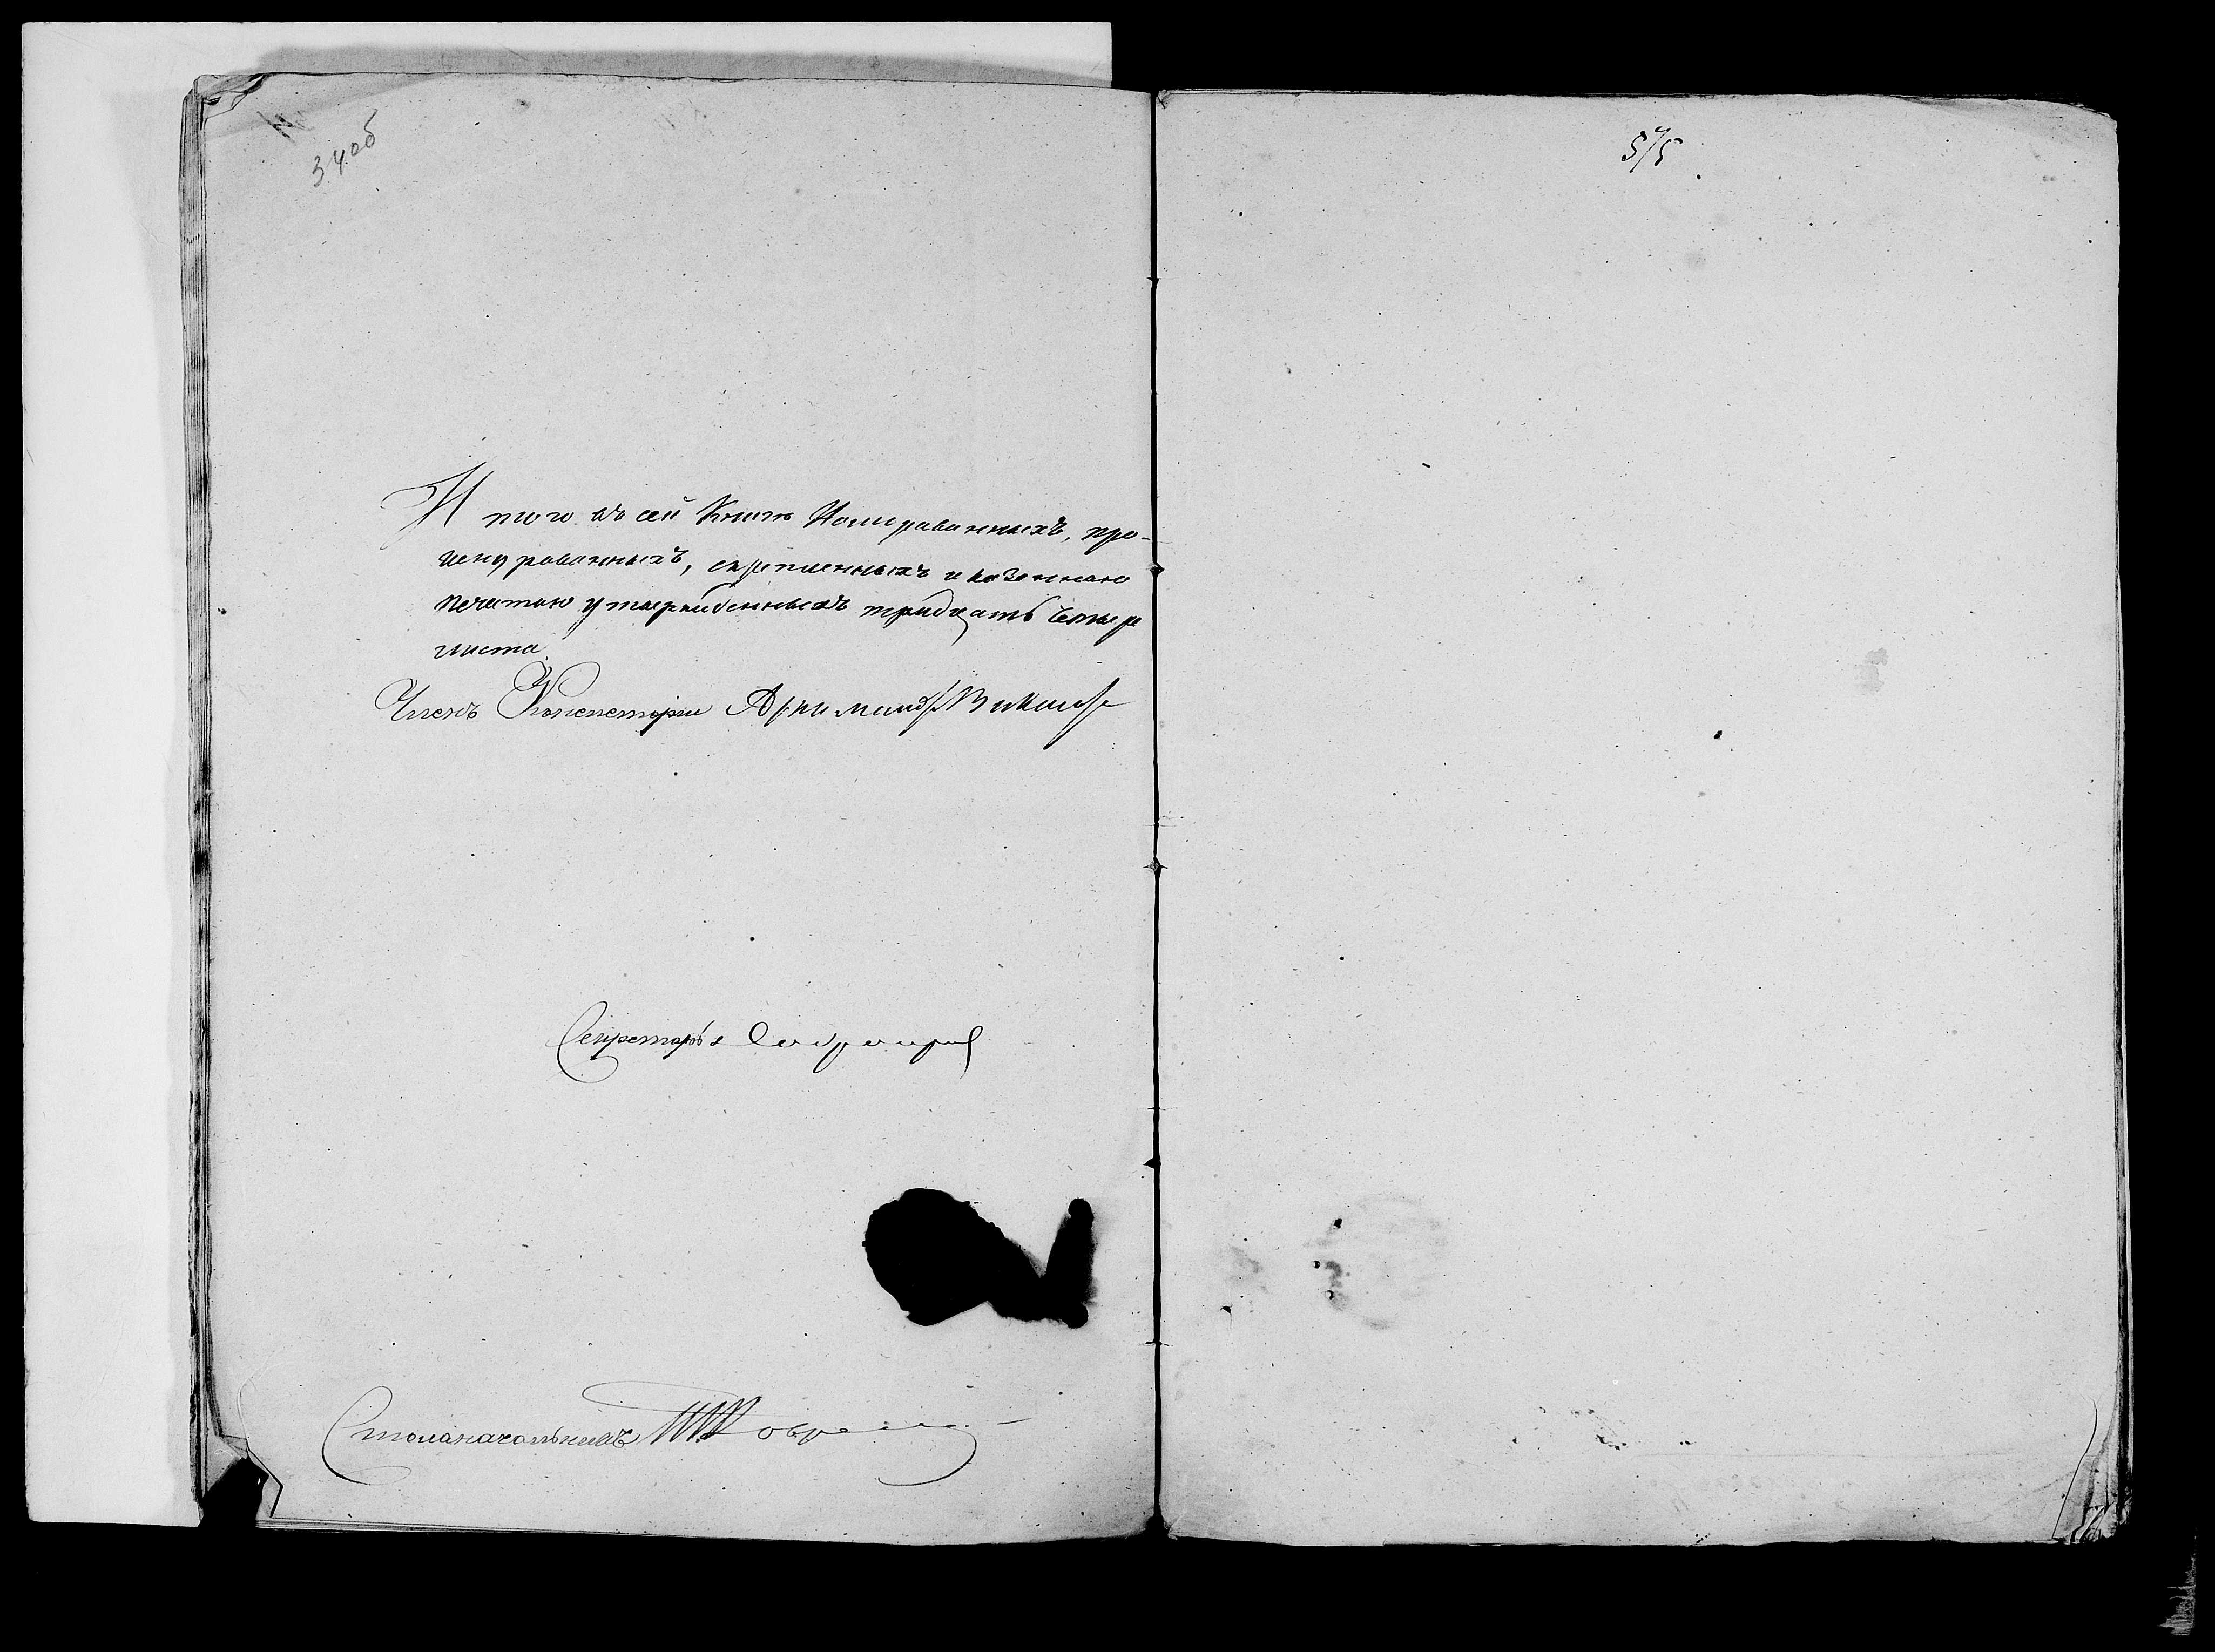 34об
И того въ сей Книгѣ Номерованныхъ, про-
шнурованныхъ, скрѣпленныхъ и казенною
печатью утвержденныхъ тридцать четыре
листа.
Членъ Консисторіи Архимандр
Секретарь
Столоначальникъ